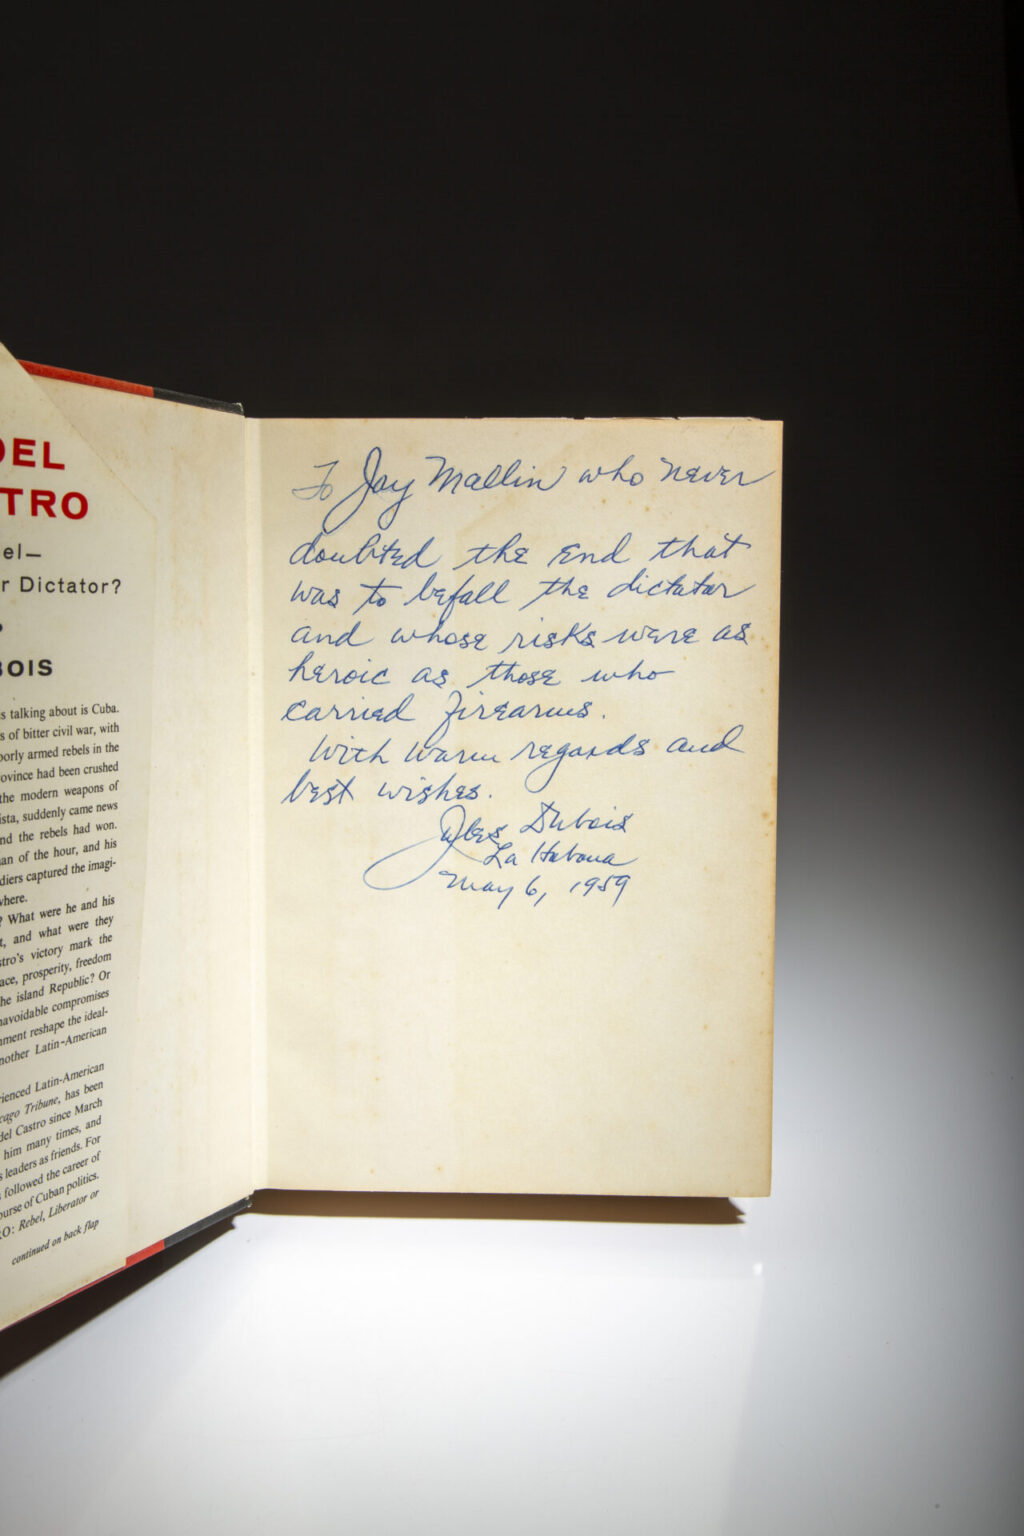 DEL
TRO
el—
r Dictator?
BOIS
s talking about is Cuba.
s of bitter civil war, with
oorly armed rebels in the
ovince had been crushed
the modern weapons of
ista, suddenly came news
nd the rebels had won.
an of the hour, and his
diers captured the imagi-
where.
? What were he and his
t, and what were they
stro's victory mark the
ace, prosperity, freedom
he island Republic? Or
navoidable compromises
nment reshape the ideal-
nother Latin-American
rienced Latin-American
cago Tribune, has been
del Castro since March
him many times, and
s leaders as friends. For
followed the career of
ourse of Cuban politics.
RO: Rebel, Liberator or
continued on back flap
To Jay Mallin who never
doubted the end that
was to befall the dictator
and whose risks were as
heroic as those who
carried firearms.
With warm regards and
best wishes.
Jules Dubois
La Habana
May 6, 1959